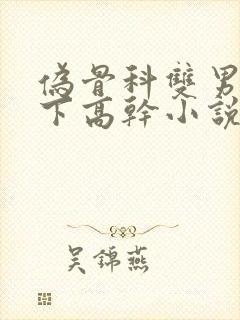 偽骨科雙男
下高幹小說
吳錦燕